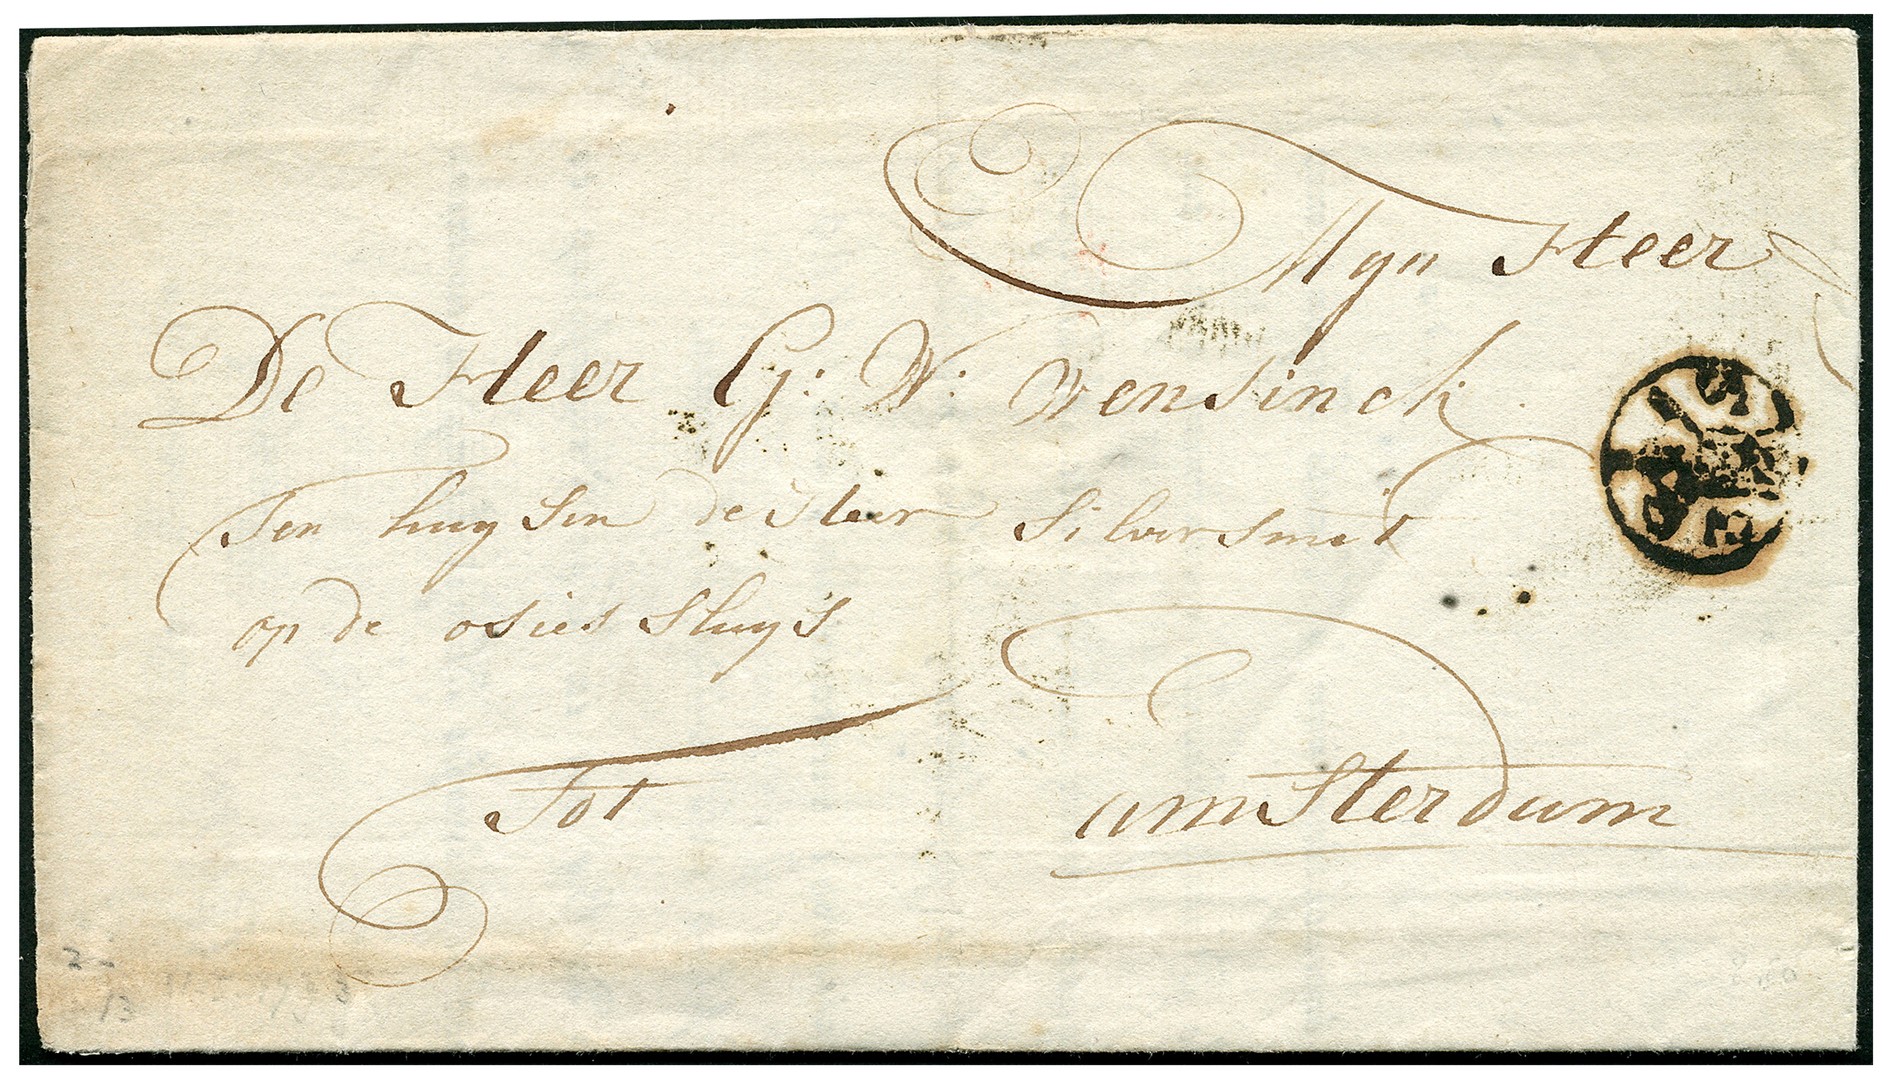 Myn Heer
De Heer G: W: Wensinck
Ten huysen de Heer Silversmit
op de osies Sluys
Tot Amsterdam